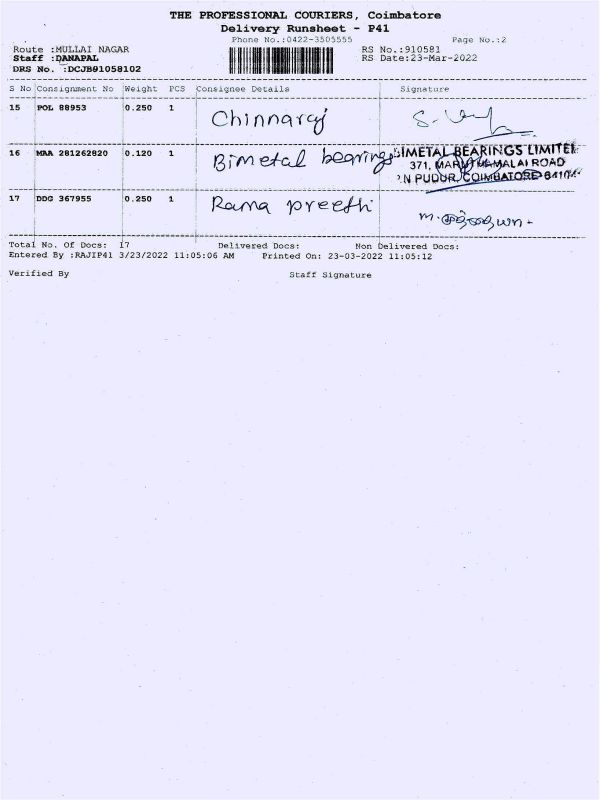 THE PROFESSIONAL COURIERS, Coimbatore
Delivery Runsheet - P41
Phone No.:0422-3505555 Page No.:2
Route :MULLAI NAGAR RS No.:910581
Staff :DANAPAL RS Date:23-Mar-2022
DRS No. :DCJB91058102
S No Consignment No Weight PCS Consignee Details Signature
15 POL 88953 0.250 1 Chinnaraj
16 MAA 281262820 0.120 1 Bimetal bearings
BIMETAL BEARINGS LIMITED
371, MARUTHAMALAI ROAD
N PUDUR, COIMBATORE-641041
17 DDG 367955 0.250 1 Rama preethi
Total No. Of Docs: 17 Delivered Docs: Non Delivered Docs:
Entered By :RAJIP41 3/23/2022 11:05:06 AM Printed On: 23-03-2022 11:05:12
Verified By Staff Signature